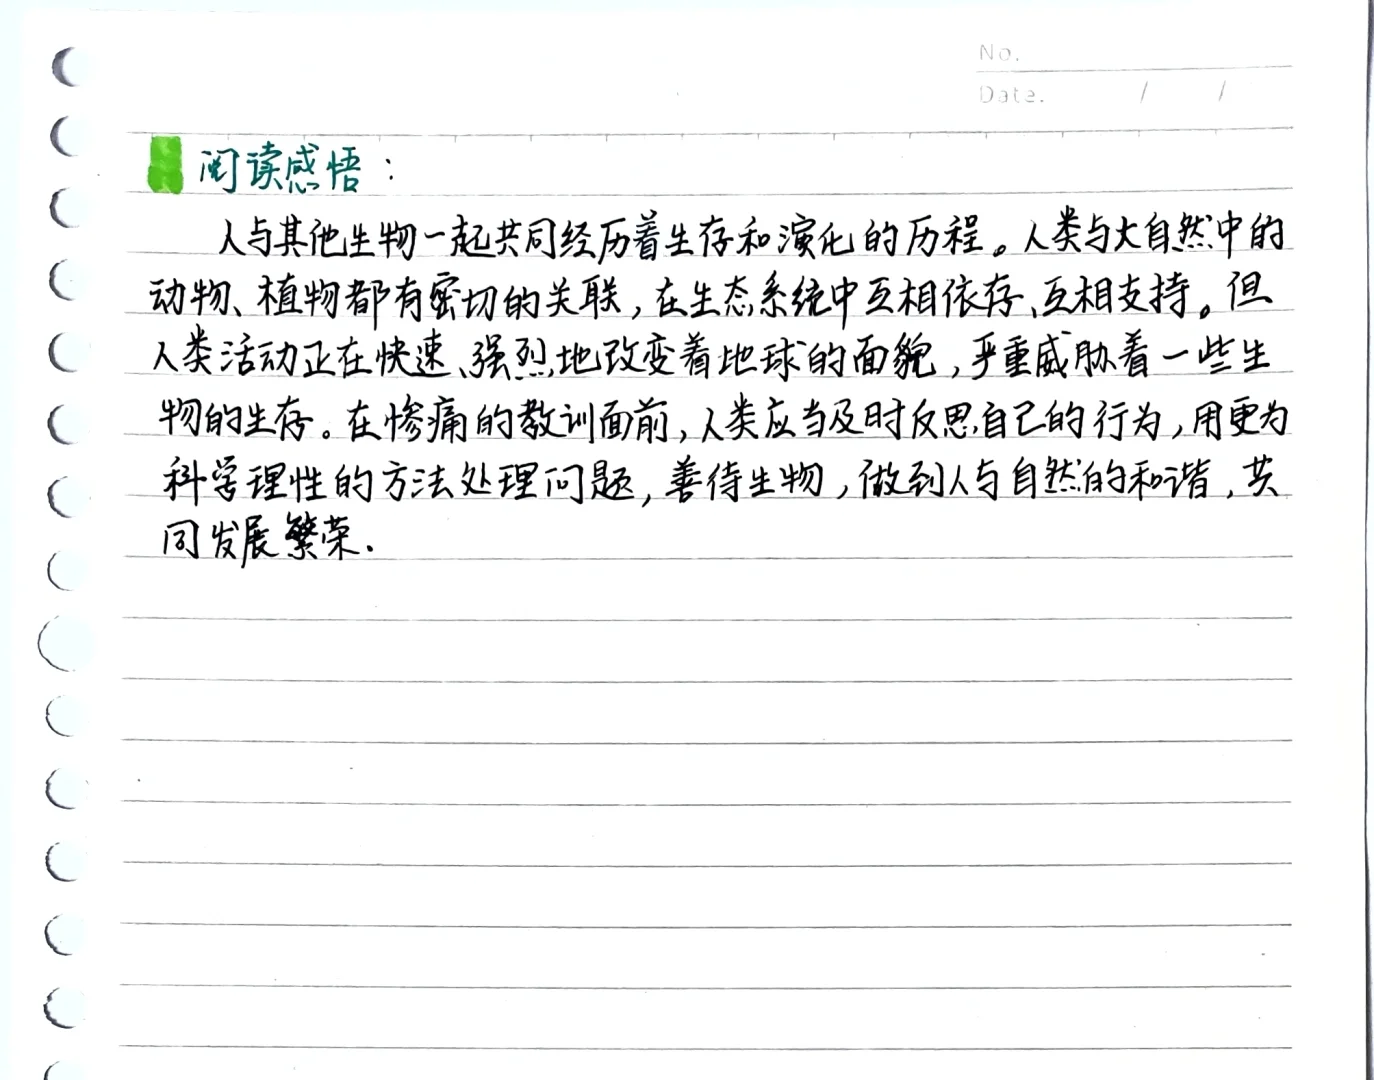 No.
Date. / /
阅读感悟：
人与其他生物一起共同经历着生存和演化的历程。人类与大自然中的
动物、植物都有密切的关联，在生态系统中互相依存、互相支持。但
人类活动正在快速、强烈地改变着地球的面貌，严重威胁着一些生
物的生存。在惨痛的教训面前，人类应当及时反思自己的行为，用更为
科学理性的方法处理问题，善待生物，做到人与自然的和谐，共
同发展繁荣.